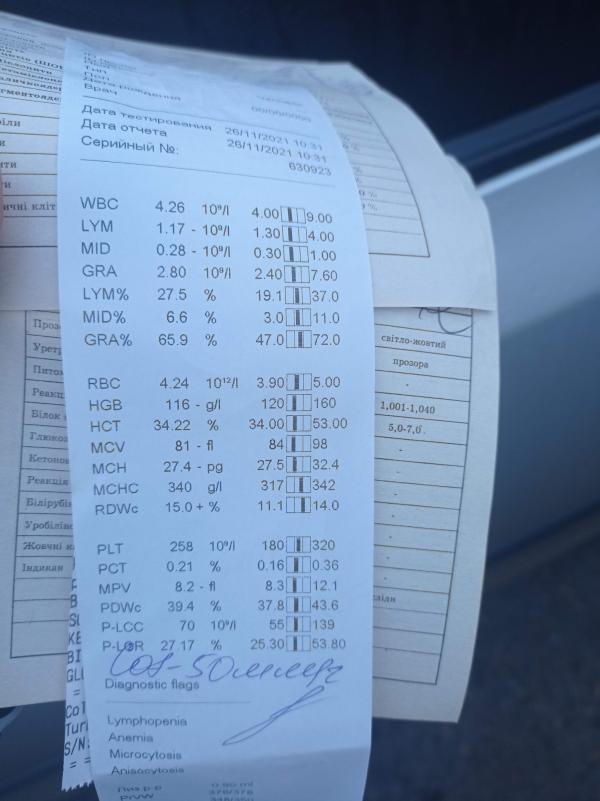 Тип
Пол
Дата рождения
Врач
00/00/0000
Дата тестирования 26/11/2021 10:31
Дата отчета 26/11/2021 10:31
Серийный №: 630923
WBC 4.26 10⁹/l 4.00 9.00
LYM 1.17 - 10⁹/l 1.30 4.00
MID 0.28 - 10⁹/l 0.30 1.00
GRA 2.80 10⁹/l 2.40 7.60
LYM% 27.5 % 19.1 37.0
MID% 6.6 % 3.0 11.0
GRA% 65.9 % 47.0 72.0
RBC 4.24 10¹²/l 3.90 5.00
HGB 116 - g/l 120 160
HCT 34.22 % 34.00 53.00
MCV 81 - fl 84 98
MCH 27.4 - pg 27.5 32.4
MCHC 340 g/l 317 342
RDWc 15.0 + % 11.1 14.0
PLT 258 10⁹/l 180 320
PCT 0.21 % 0.16 0.36
MPV 8.2 - fl 8.3 12.1
PDWc 39.4 % 37.8 43.6
P-LCC 70 10⁹/l 55 139
P-LCR 27.17 % 25.30 53.80
Diagnostic flags
Lymphopenia
Anemia
Microcytosis
Anisocytosis
світло-жовтий
прозора
-
1,001-1,040
5,0-7,0
-
-
-
-
Проз
Урет
Питом
Реакц
Білок
Глюкоз
Кетонов
Реакція
Білірубін
Уробілін
Жовчні к
Індикан
BI
GL
Col
Tur
S/N: